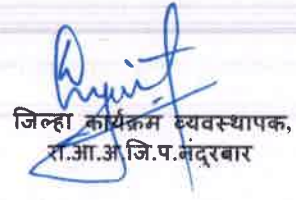 जिल्हा कार्यक्रम व्यवस्थापक,
रा.आ.अ.जि.प.नंदूरबार